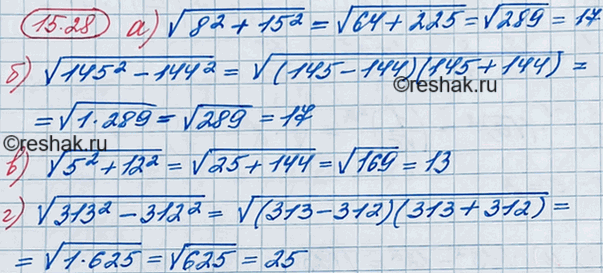 15.28 а) √(8² + 15²) = √(64 + 225) = √289 = 17
б) √(145² − 144²) = √((145 − 144)(145 + 144)) =
= √(1·289) = √289 = 17
©reshak.ru
©reshak.ru
в) √(5² + 12²) = √(25 + 144) = √169 = 13
г) √(313² − 312²) = √((313 − 312)(313 + 312)) =
= √(1·625) = √625 = 25